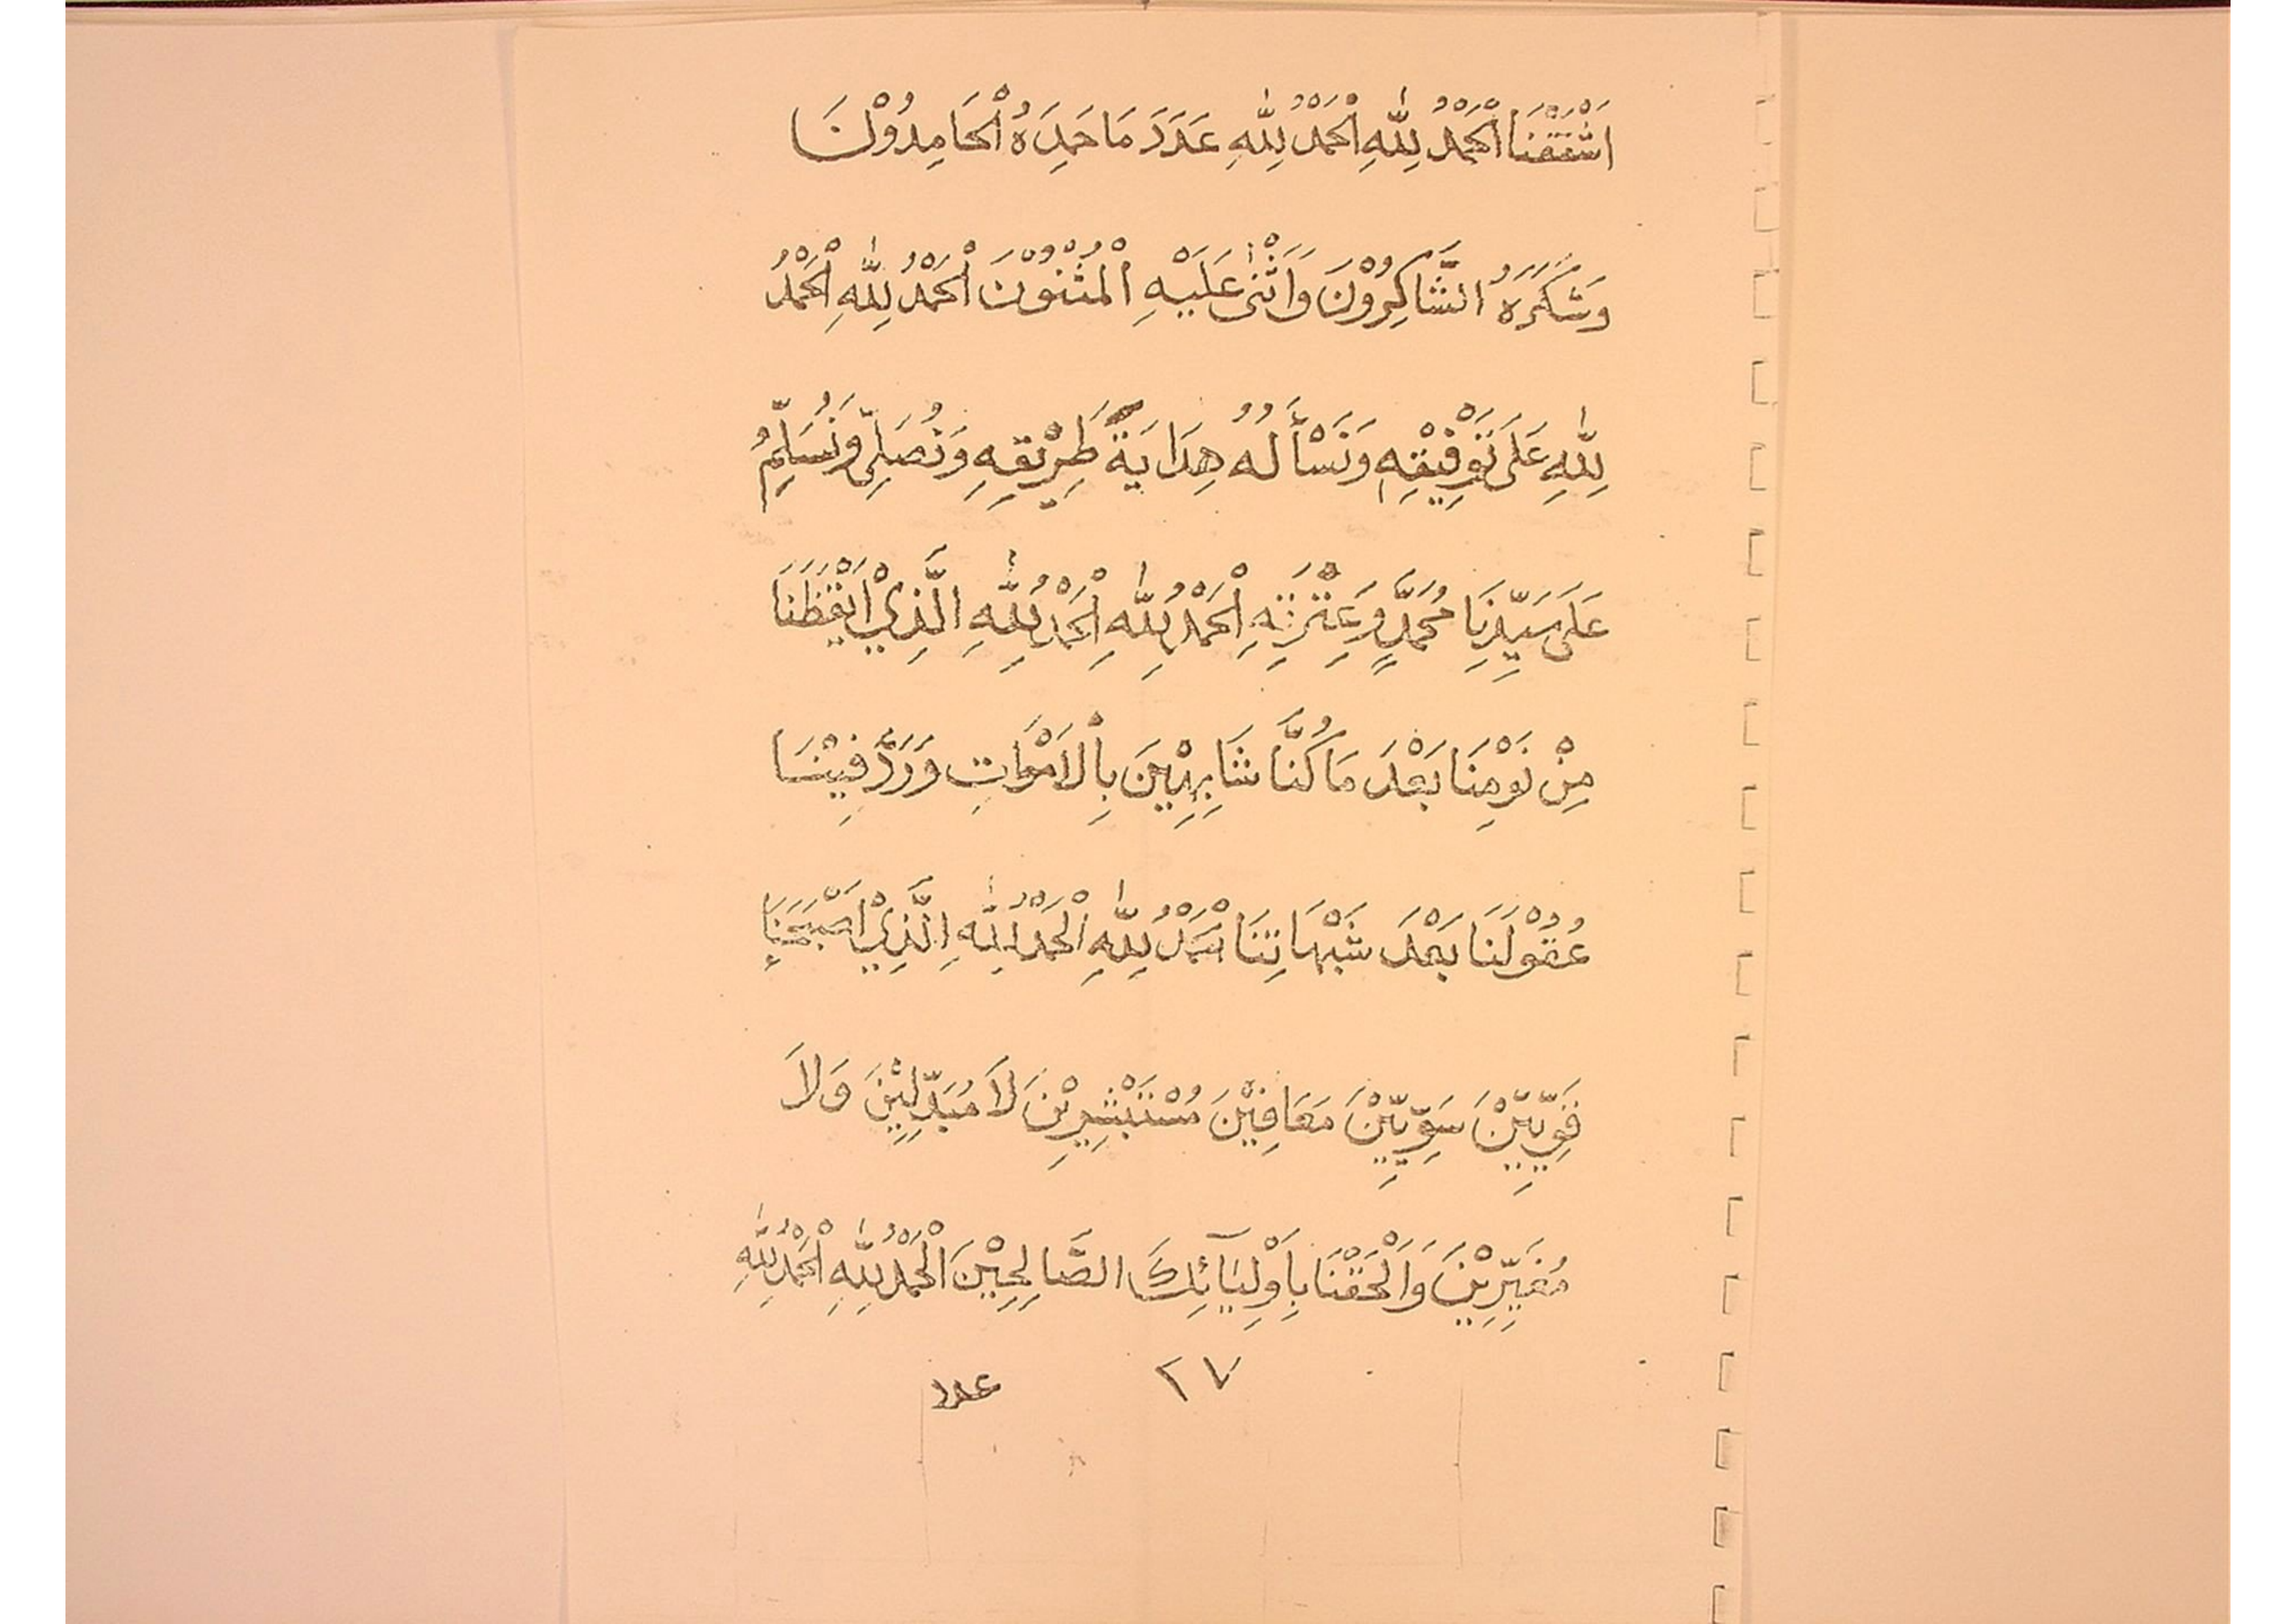 اَشْفَقْنَا اَلْحَمْدُ لِلّٰهِ اَلْحَمْدُ لِلّٰهِ عَدَدَ مَا حَمِدَهُ الْحَامِدُوْنَ
وَشَكَرَهُ الشَّاكِرُوْنَ وَاَثْنٰى عَلَيْهِ الْمُثْنُوْنَ اَلْحَمْدُ لِلّٰهِ اَلْحَمْدُ
لِلّٰهِ عَلَى تَوْفِيْقِهِ وَنَسْأَلُهُ هِدَايَةَ طَرِيْقِهِ وَنُصَلِّى وَنُسَلِّمُ
عَلَى سَيِّدِنَا مُحَمَّدٍ وَعِتْرَتِهِ اَلْحَمْدُ لِلّٰهِ اَلْحَمْدُ لِلّٰهِ الَّذِيْ اَيْقَظَنَا
مِنْ نَوْمِنَا بَعْدَ مَا كُنَّا شَابِهِيْنَ بِالْاَمْوَاتِ وَرَدَّ فِيْنَا
عُقُوْلَنَا بَعْدَ شَبْهَاتِنَا اَلْحَمْدُ لِلّٰهِ اَلْحَمْدُ لِلّٰهِ الَّذِيْ اَصْبَحَنَا
قَوِيِّيْنَ سَوِيِّيْنَ مَعَافِيْنَ مُسْتَبْشِرِيْنَ لَا مُبَدِّلِيْنَ وَلَا
مُغَيِّرِيْنَ وَاَلْحِقْنَا بِاَوْلِيَآئِكَ الصَّالِحِيْنَ اَلْحَمْدُ لِلّٰهِ اَلْحَمْدُ لِلّٰهِ
٢٧ عدد